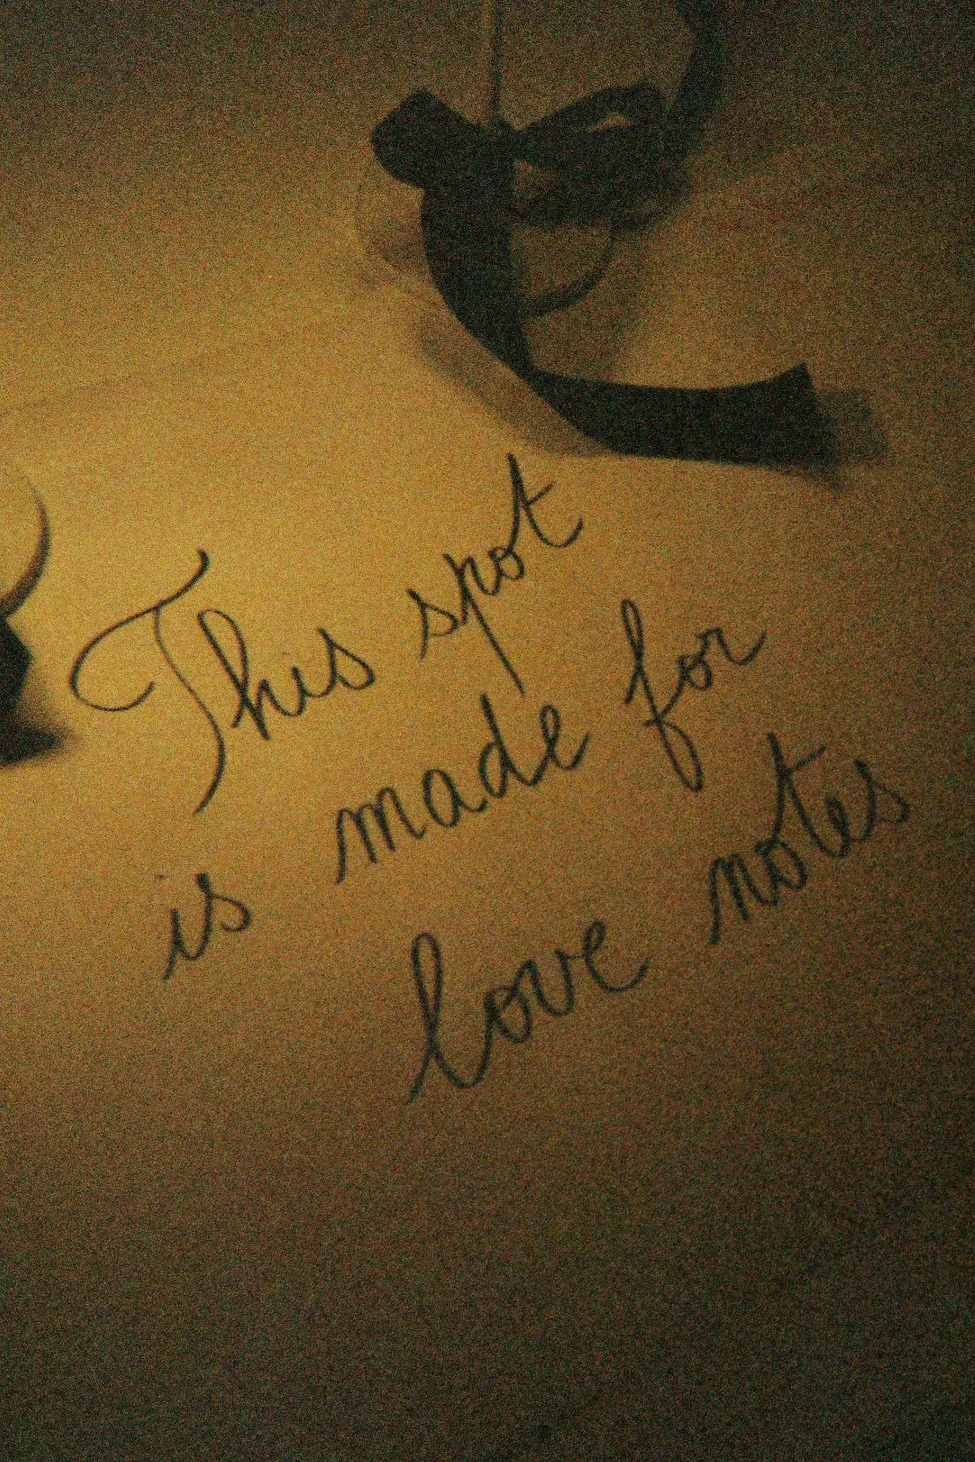 This spot
is made for
love notes